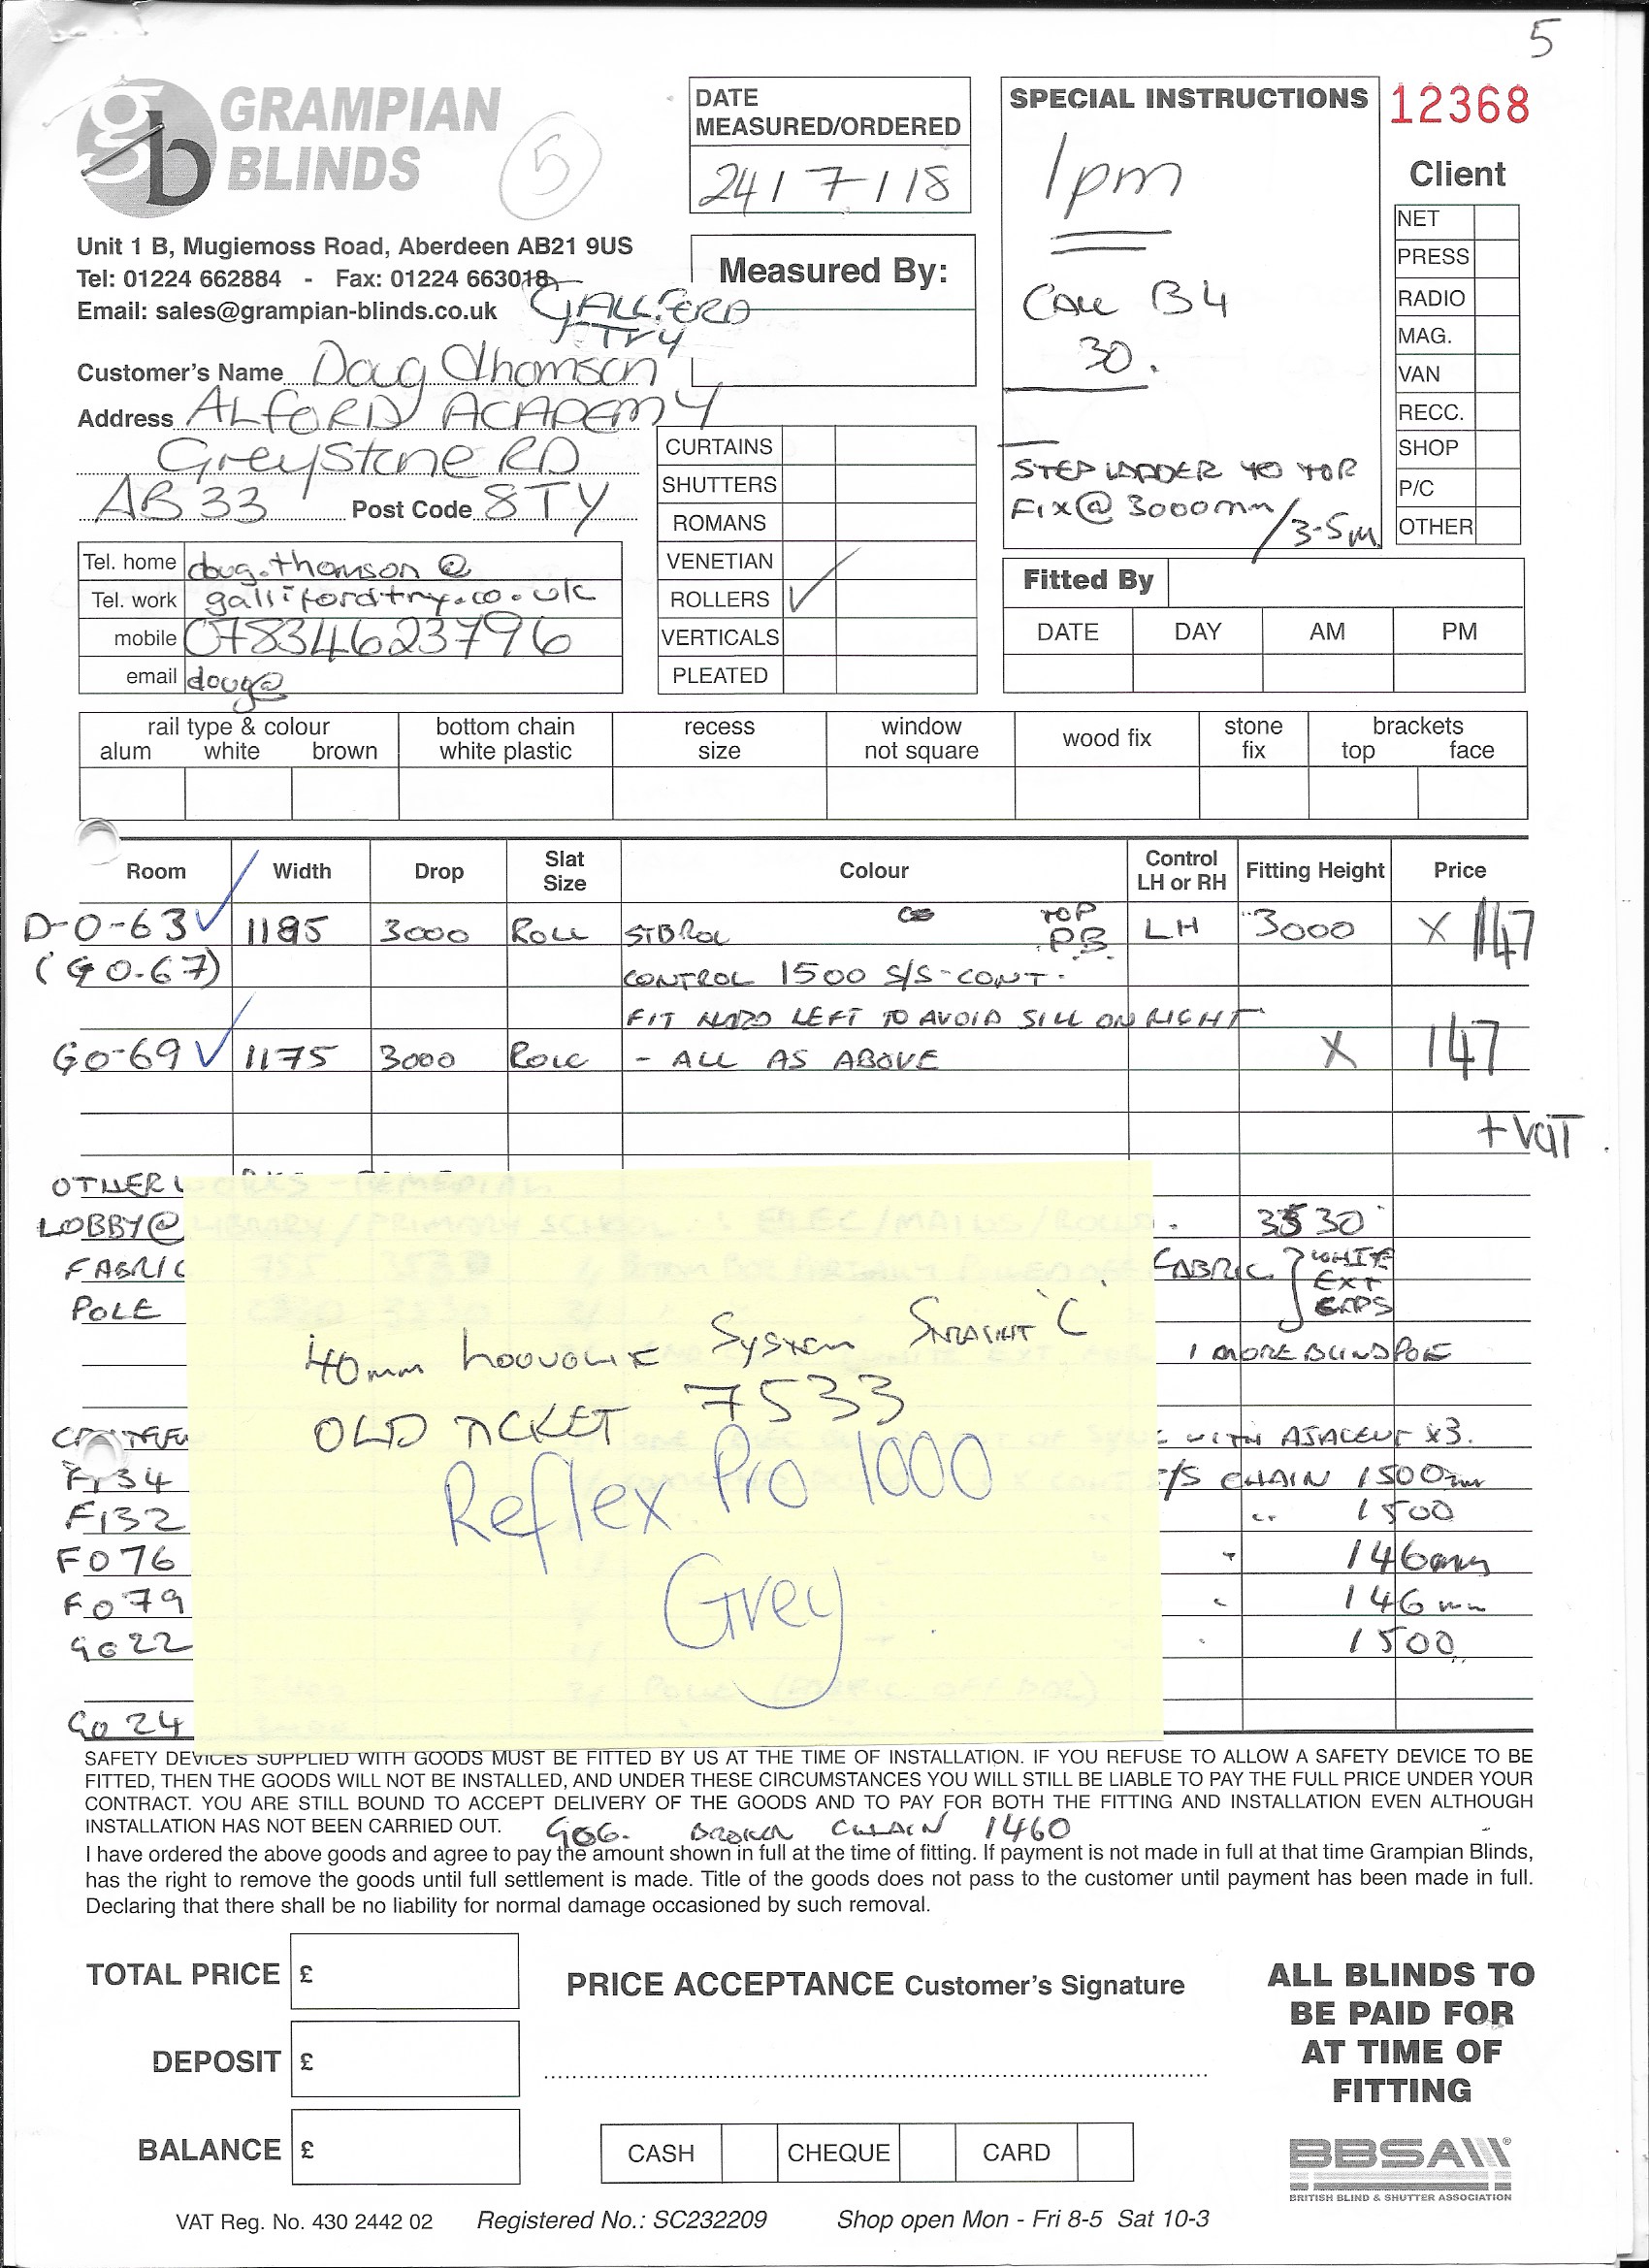 5
GRAMPIAN
BLINDS
5
Unit 1 B, Mugiemoss Road, Aberdeen AB21 9US
Tel: 01224 662884 - Fax: 01224 663018
Email: sales@grampian-blinds.co.uk
GALLIFORD
TRY
Customer's Name Doug Thomson
Address ALFORD ACADEMY
Greystone RD
AB33 Post Code 8TY
Tel. home doug.thomson@
Tel. work gallifordtry.co.uk
mobile 07834623796
email doug@
DATE
MEASURED/ORDERED
24/7/18
Measured By:
CURTAINS
SHUTTERS
ROMANS
VENETIAN
ROLLERS ✓
VERTICALS
PLEATED
SPECIAL INSTRUCTIONS
1pm
CALL B4
30.
STEP LADDER TO TOP
FIX @ 3000mm/3-5m
12368
Client
NET
PRESS
RADIO
MAG.
VAN
RECC.
SHOP
P/C
OTHER
Fitted By
DATE DAY AM PM
rail type & colour
alum white brown
bottom chain
white plastic
recess
size
window
not square
wood fix
stone
fix
brackets
top face
Room Width Drop Slat Size Colour Control LH or RH Fitting Height Price
D-0-63 ✓ 1185 3000 ROLL STBROL TOP P.B. LH 3000 X 147
(G0-67) CONTROL 1500 S/S-CONT.
FIT HARD LEFT TO AVOID SILL ON RIGHT
G0-69 ✓ 1175 3000 ROLL - ALL AS ABOVE X 147
+ VAT
OTHER WORKS - REMEDIAL
LOBBY @ LIBRARY/PRIMARY SCHOOL : ELEC/MAINS/ROLL. 3530
FABRIC 755 3530 FABRIC } WHITE EXT CAPS
POLE
1 MORE BLIND POLE
WITH AJACENT x3.
F134 S/S CHAIN 1500mm
F132 " 1500
F076 " 146
F079 " 146
G022 " 1500
G024
40mm LOUVOLITE SYSTEM STRAIGHT 'C'
OLD TICKET 7533
Reflex Pro 1000
Grey
SAFETY DEVICES SUPPLIED WITH GOODS MUST BE FITTED BY US AT THE TIME OF INSTALLATION. IF YOU REFUSE TO ALLOW A SAFETY DEVICE TO BE
FITTED, THEN THE GOODS WILL NOT BE INSTALLED, AND UNDER THESE CIRCUMSTANCES YOU WILL STILL BE LIABLE TO PAY THE FULL PRICE UNDER YOUR
CONTRACT. YOU ARE STILL BOUND TO ACCEPT DELIVERY OF THE GOODS AND TO PAY FOR BOTH THE FITTING AND INSTALLATION EVEN ALTHOUGH
INSTALLATION HAS NOT BEEN CARRIED OUT.
BROKEN CHAIN 1460
I have ordered the above goods and agree to pay the amount shown in full at the time of fitting. If payment is not made in full at that time Grampian Blinds,
has the right to remove the goods until full settlement is made. Title of the goods does not pass to the customer until payment has been made in full.
Declaring that there shall be no liability for normal damage occasioned by such removal.
TOTAL PRICE £
DEPOSIT £
BALANCE £
PRICE ACCEPTANCE Customer's Signature
CASH CHEQUE CARD
ALL BLINDS TO
BE PAID FOR
AT TIME OF
FITTING
BBSA
BRITISH BLIND & SHUTTER ASSOCIATION
VAT Reg. No. 430 2442 02 Registered No.: SC232209 Shop open Mon - Fri 8-5 Sat 10-3